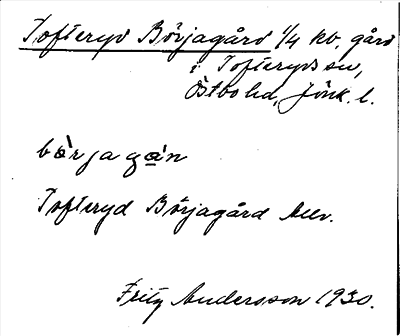 Tofteryd Börjagård 1/4 kv. gård
i Tofteryds sn,
Östbo hd, Jönk. l.
bœ̀rjagɑ̀n
Tofteryd Börjagård
Fritz Andersson 1930.